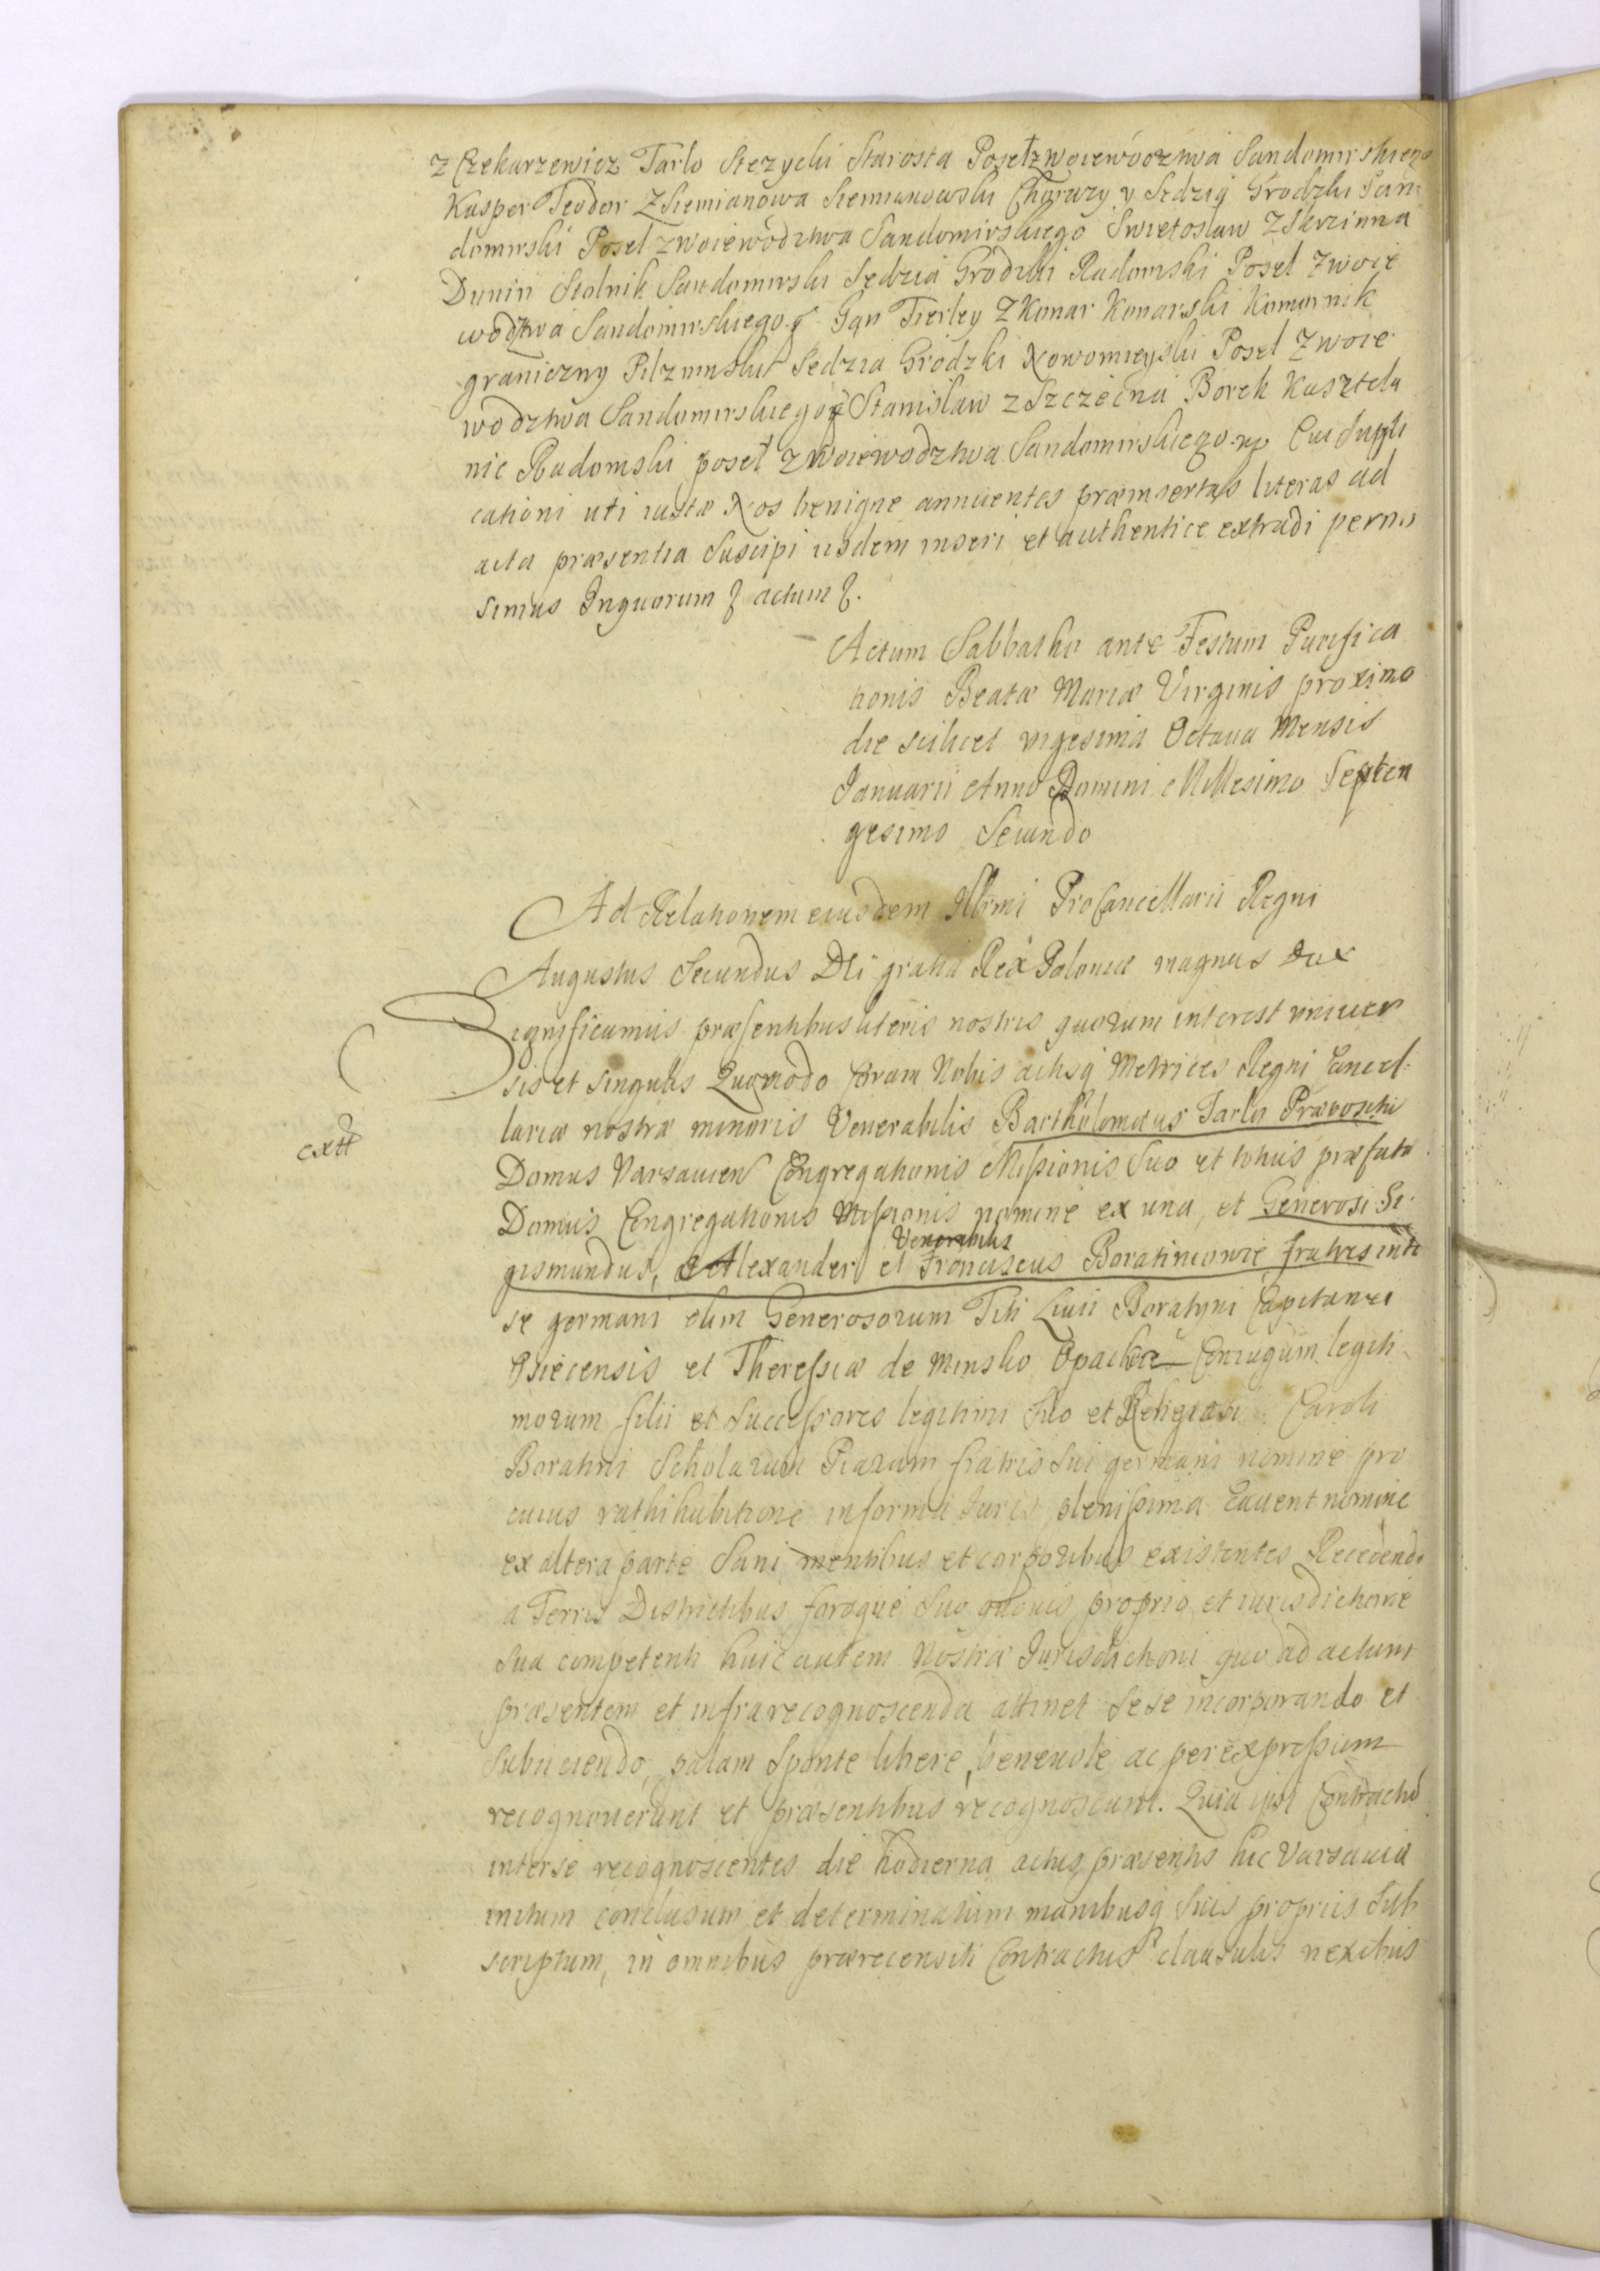 z Czekarzewicz Tarlo Stezycki Starosta Posel z woiewodztwa Sandomirskiego
Kasper Teodor z Siemianowa Siemianowski Chorazy y Sedzia Grodzki San
domirski Posel z woiewodztwa Sandomirskiego Swietoslaw z Skrzinna
Dunin Stolnik Sandomirski Sedzia Grodzki Radomski Posel z woie
wodztwa Sandomirskiego Jan Fierley z Konar Konarski Komornik
graniczny Pilznenski Sedzia Grodzki Nowomieyski Posel z woie
wodztwa Sandomirskiego Stanislaw z Szczecna Borek Kasztela
nic Radomski posel z woiewodztwa Sandomirskiego mp Cui Suppli
cationi uti iustæ Nos benigne annuentes præinsertas literas ad
acta præsentia suscipi iisdem inseri et authentice extradi permi
simus Inquorum actum
Actum Sabbatho ante Festum Purifica
tionis Beatæ Mariæ Virginis proximo
die scilicet vigesima Octava Mensis
Januarii Anno Domini Millesimo Septen
gesimo Secundo
Ad Relationem eiusdem Illrmi ProCancellarii Regni
Augustus Secundus Dei gratia Rex Poloniæ magnus Dux
Significamus præsentibus literis nostris quorum interest univer
sis et singulis Quomodo Coram Nobis actisq Metrices Regni Cancel
lariæ nostræ minoris Venerabilis Bartholomæus Tarlo Præpositus
Domus Varsavien Congregationis Missionis Suo et totius præfatæ
Domus Congregationis Missionis nomine ex una, et Generosi Si
gismundus, Alexander et Venerabilis Franciscus Boratiniowie fratres inter
se germani olim Generosorum Titi Livii Boratyni Capitanei
Osiecensis et Theressiæ de Minsko Opackie Coniugum legiti
morum filii et Successores legitimi Suo et Religiosi Caroli
Boratini Scholarum Piarum fratris sui germani nomine pro
cuius rathihabitione in forma Juris plenissima Cavent nomine
ex altera parte Sani mentibus et corporibus existentes Recedendo
a Terris Districtibus foroque suo proprio et iurisdictione
sua competenti huic autem Nostræ Jurisdictioni quo ad actum
præsentem et infrarecognoscenda attinet Sese incorporando et
subiiciendo, palam sponte libere, benevole ac per expressum
recognoverunt et præsentibus recognoscunt. Quia ipsi Contractum
inter se recognoscientes die hodierna actus præsentis hic Varsavia
initum conclusum et determinatum manibusq suis propriis Sub
scriptum, in omnibus prærecensiti Contractus clausulis nexibus
cxtt